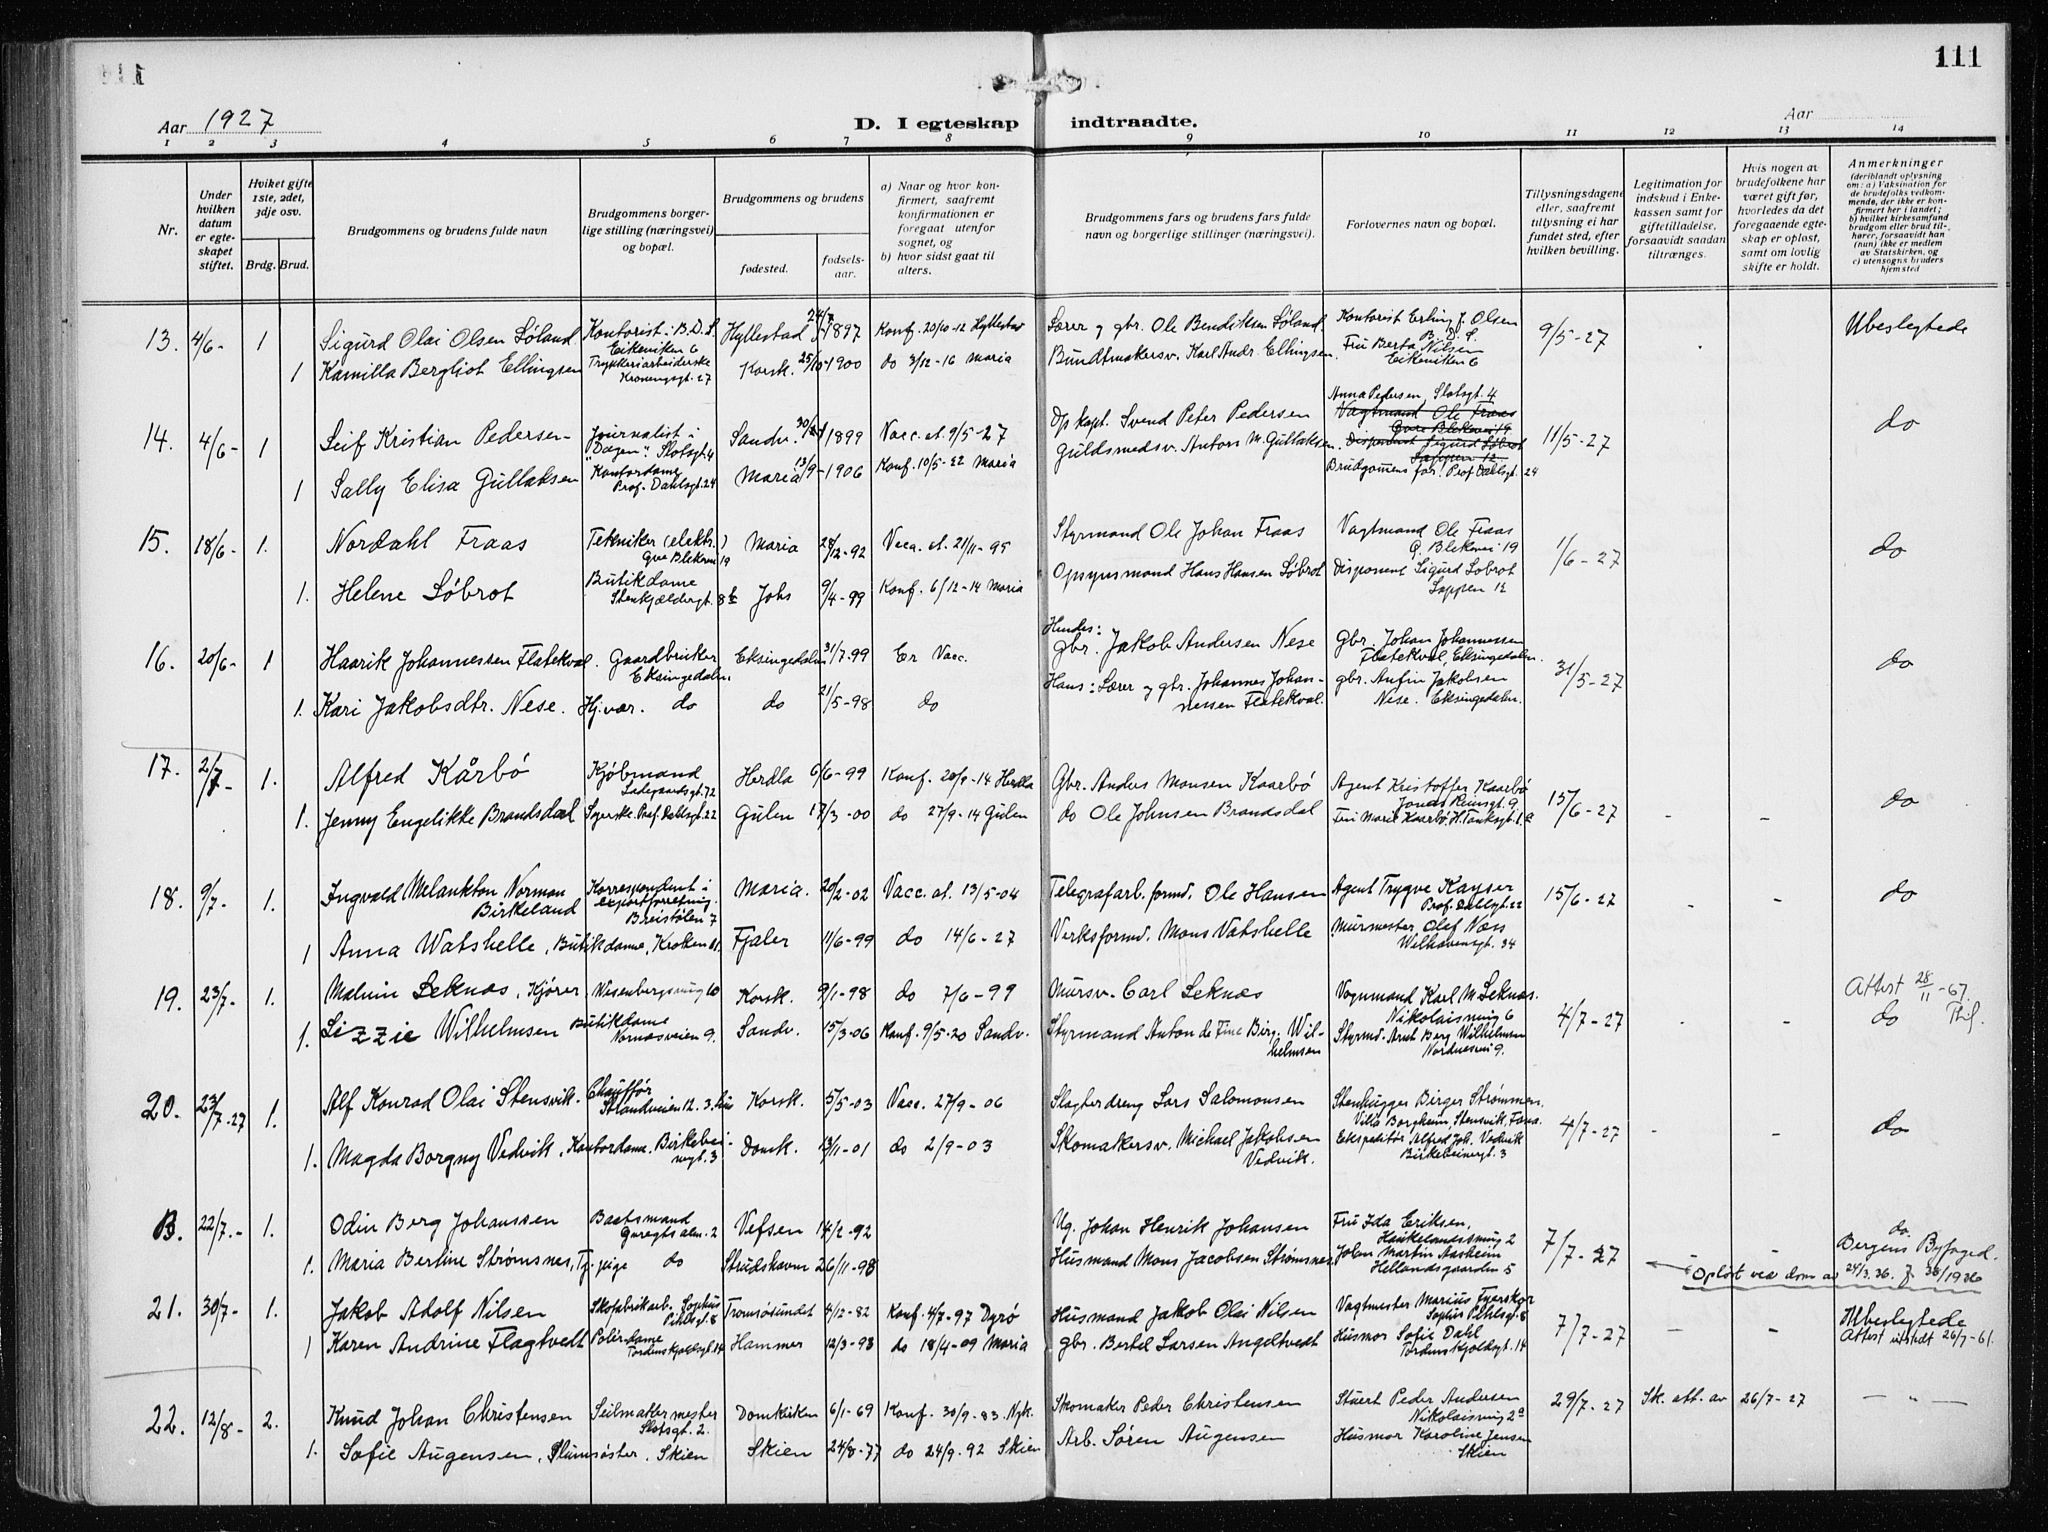 111
Aar 1927
D. I egteskap indtraadte.
Aar
1 2 3 4 5 6 7 8 9 10 11 12 13 14
Nr.
Under hvilken datum er egteskapet stiftet.
Hviket gifte 1ste, 2det, 3dje osv.
Brdg. Brud.
Brudgommens og brudens fulde navn
Brudgommens borgerlige stilling (næringsvei) og bopæl.
Brudgommens og brudens
fødested.
fødselsaar.
a) Naar og hvor konfirmert, saafremt konfirmationen er foregaat utenfor sognet, og
b) hvor sidst gaat til alters.
Brudgommens fars og brudens fars fulde navn og borgerlige stillinger (næringsvei).
Forlovernes navn og bopæl.
Tillysningsdagene eller, saafremt tillysning ei har fundet sted, efter hvilken bevilling.
Legitimation for indskud i Enkekassen samt for giftetilladelse, forsaavidt saadan tiltrænges.
Hvis nogen av brudefolkene har været gift før, hvorledes da det foregaaende egteskap er opløst, samt om lovlig skifte er holdt.
Anmerkninger (deriblandt oplysning om: a) Vaksination for de brudefolks vedkommende, der ikke er konfirmert her i landet; b) hvilket kirkesamfund brudgom eller brud tilhører, forsaavidt han (hun) ikke er medlem av Statskirken, og c) utensogns bruders hjemsted
13. 4/6- 1 Sigurd Olai Olsen Søland Kontorist i B.D.S. Eikeviken 6 Hyllestad 1897 Konf. 20/10-12 Hyllestad Lærer og gbr. Ole Bendiksen Søland. Kontorist Erling J. Olsen B.D.S. 9/5-27 Ubeslegtede
1 Kamilla Bergliot Ellingsen Trykkeriarbeiderske Kroningsgt. 27 Korsk. 25/10-1900 do 3/12-16 Maria Bundtmakersv. Karl Andr. Ellingsen. Fru Berta Nilsen Eikeviken 6
14. 4/6- 1 Leif Kristian Pedersen- Journalist i "Dagen". Slotsgt. 4 Sandv. 1899 Vacc. at. 9/5-27 Dpskapt. Svend Peter Pedersen Anna Pedersen, Slotsgt. 4 Vagtmand Ole Fraas Gvre Blekevei 19 11/5-27 do
1 Sally Elisa Gullaksen Kontordame Prof. Dahlsgt. 24 Maria 13/9-1906 Konf. 10/5-22 Maria Guldsmedsv. Anton M. Gullaksen. Disponent Sigurd Søbrot Sappen 12 Brudgomens far. Prof. Dahlsgt. 24
15. 18/6- 1. Nordahl Fraas Tekniker (elektr.) Gve Blekevei 19 Maria 28/12-92 Vacc. at. 21/11-95 Styrmand Ole Johan Fraas Vagtmand Ole Fraas G. Blekevei 19 1/6-27 do
1. Helene Søbrot Butikdame Stenkjeldergt. 8b Johs 9/4-99 Konf. 6/12-14 Maria Opsynsmand Hans Hansen Søbrot Disponent Sigurd Søbrot Sappen 12
16. 20/6- 1 Haarik Johannessen Flatekval. Gaardbruker Eksingedalen. Eksingedalen 31/7-99 Er Vacc. Hendes: Gbr. Jakob Andersen Nese Gbr. Johan Johannessen Flatekval, Eksingedalen. 31/5-27 do
1. Kari Jakobsdtr. Nese. Hj.vær. do do 21/5-98 do Hans: Lærer og gbr. Johannes Johannessen Flatekval. gbr. Anfin Jakobsen Nese. Eksingedalen.
17. 2/7- 1. Alfred Kårbø Kjøbmand Ladegaardsgt. 72 Herdla 6/6-99 Konf. 20/9-14 Herdla Gbr. Anders Monsen Kaarbø Agent Kristoffer Kaarbø Jonas Reinsgt. 9 15/6-27 - - do
1. Jenny Engelikke Brandsdal Syerske. Prof. Dahlsgt. 22 Gulen 17/3-00 do 27/9-14 Gulen do Ole Johnsen Brandsdal Fru Marie Kaarbø. H. Tanksgt. 1.a
18. 9/7- 1. Ingvald Melankton Norman Birkeland Korrespondent i exportforretning. Breistølen 7 Maria. 20/2-02 Vacc. at. 13/5-04 Telegrafarb. formd. Ole Hansen Agent Trygve Kayser Prof. Dahlsgt. 22 15/6-27 - - do
1 Anna Watshelle, Butikdame, Kroken 11. Fjaler 11/6-99 do 14/6-27 Verksformd. Mons Vatshelle Murmester Olaf Næss Welhavensgt. 34
19. 23/7- 1. Malvin Leknæs, Kjører Wesenbergsmug 10 Korsk. 9/1-98 do 7/6-99 Mursv. Carl Leknæs Vognmand Karl M. Leknæs. Nikolaismug 6 4/7-27 - - Attest 28/11-67. do
1. Lizzie Wilhelmsen Butikdame Nornæsveien 9. Sandv. 15/3-06 Konf. 9/5-20 Sandv. Styrmand Anton de Fine Berg. Wilhelmsen Styrmd. Arnt Berg Wilhelmsen Nordnesvei 9.
20. 23/7-27 1. Alf Konrad Olai Stensvik- Chauffør Strandveien 12. 3. hus Korsk. 5/5-03 Vacc. 27/9-06 Slagterdreng Lars Salomonsen Stenhugger Birger Strømmen. Villa Borgheim, Stensvik, Fana. 4/7-27 - - do
1. Magda Borgny Vedvik, Kontordame. Birkebeinergt. 3 Domk. 13/11-01 do 2/9-03 Skomakersv. Michael Jakobsen Vedvik. Ekspeditør Alfred Joh. Vedvik Birkebeinergt. 3
B. 22/7.- 1. Odin Berg Johanssen Baatsmand Vefsen 14/2-92 Ug. Johan Henrik Johansen Fru Ida Eriksen, Haukelandsmug 2 7/7-27 - - do. Bergens Byfoged.
1. Maria Bertine Strømsnes, Tj. pige do Strudshavn 26/11-98 Husmand Mons Jacobsen Strømsnes. Johan Martin Aasheim Hellandsgaarden 5 Opløst ved dom av 24/3.36. J. 38/1936
21. 30/7- 1. Jakob Adolf Nilsen Skofabrikarb. Sophus Pihlsgt. 8 Tromsøsundet 4/12-82 Konf. 4/7-97 Dyrø Husmand Jakob Olai Nilsen Vagtmester Marius Fjærskar Sophus Pihlsgt. 8 7/7-27 - - Ubeslegtede
1 Karen Andrine Flagtvedt Polerdame Tordenskjoldsgt. 14 Hammer 12/3-93 do 18/4-09 Maria gbr. Bertel Larsen Angeltvedt Husmor Sofie Dahl Tordenskjoldsgt. 14 Attest utstedt 26/7-61.
22. 12/8- 2. Knud Johan Christensen Seilmakermester Slotsgt. 2. Domkirken 6/1-69 Konf. 30/9-83. Nyk. Skomaker Peder Christensen Stuert Peder Andersen Nikolaismug 2a 29/7-27 Sk. att. av 26/7-27 - " -
1. Sofie Augensen, Slumsøster. Skien Skien 24/8-77 do 24/9-92 Skien Arb. Søren Augensen Husmor Karoline Jensen Skien